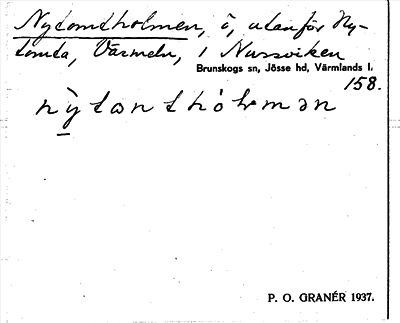 Nytomtholmen, ö, utanför Ny-
tomta, Värmeln, i Nussviken
Brunskogs sn, Jösse hd, Värmlands l.
158.
nỳtomthòlmən
P. O. GRANÉR 1937.